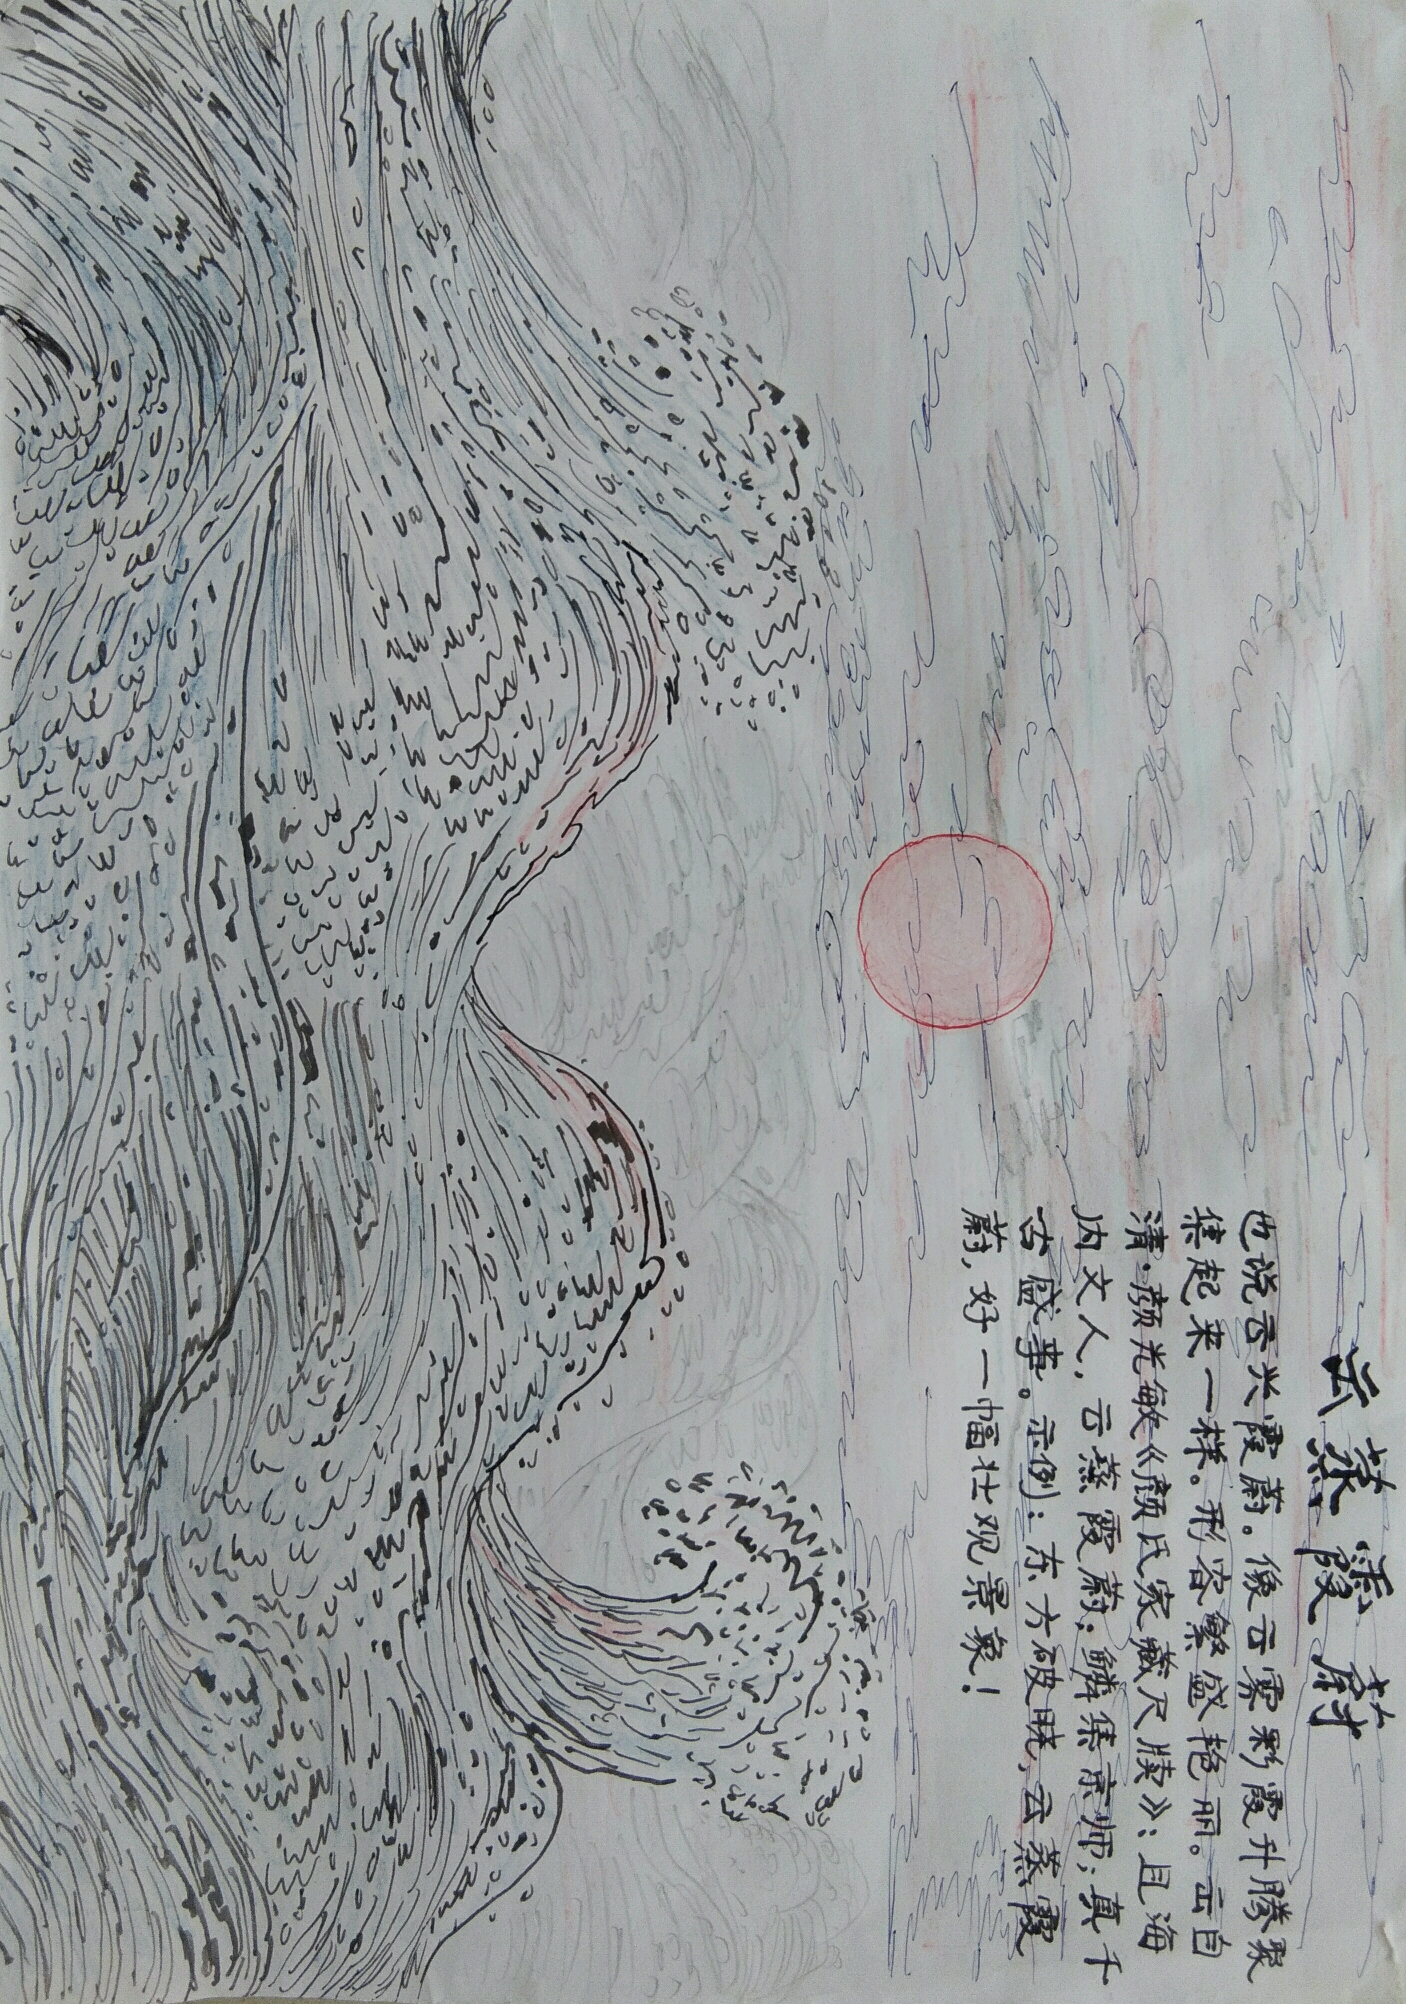 云蒸霞蔚
也说云兴霞蔚。像云雾彩霞升腾聚
集起来一样。形容繁盛艳丽。云自
清·颜光敏《颜氏家藏尺牍》：且海
内文人，云蒸霞蔚，鳞集京师，真千
古盛事。示例：东方破晓，云蒸霞
蔚，好一幅壮观景象！